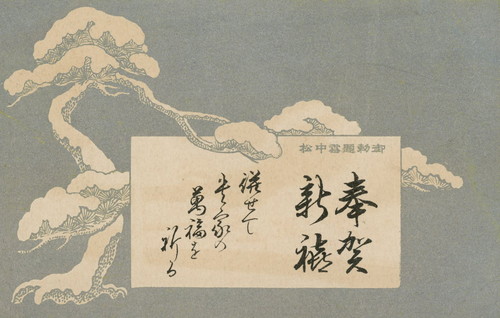 御勅題雪中松
奉賀
新禧
併せて
貴家の
萬福を
祈る